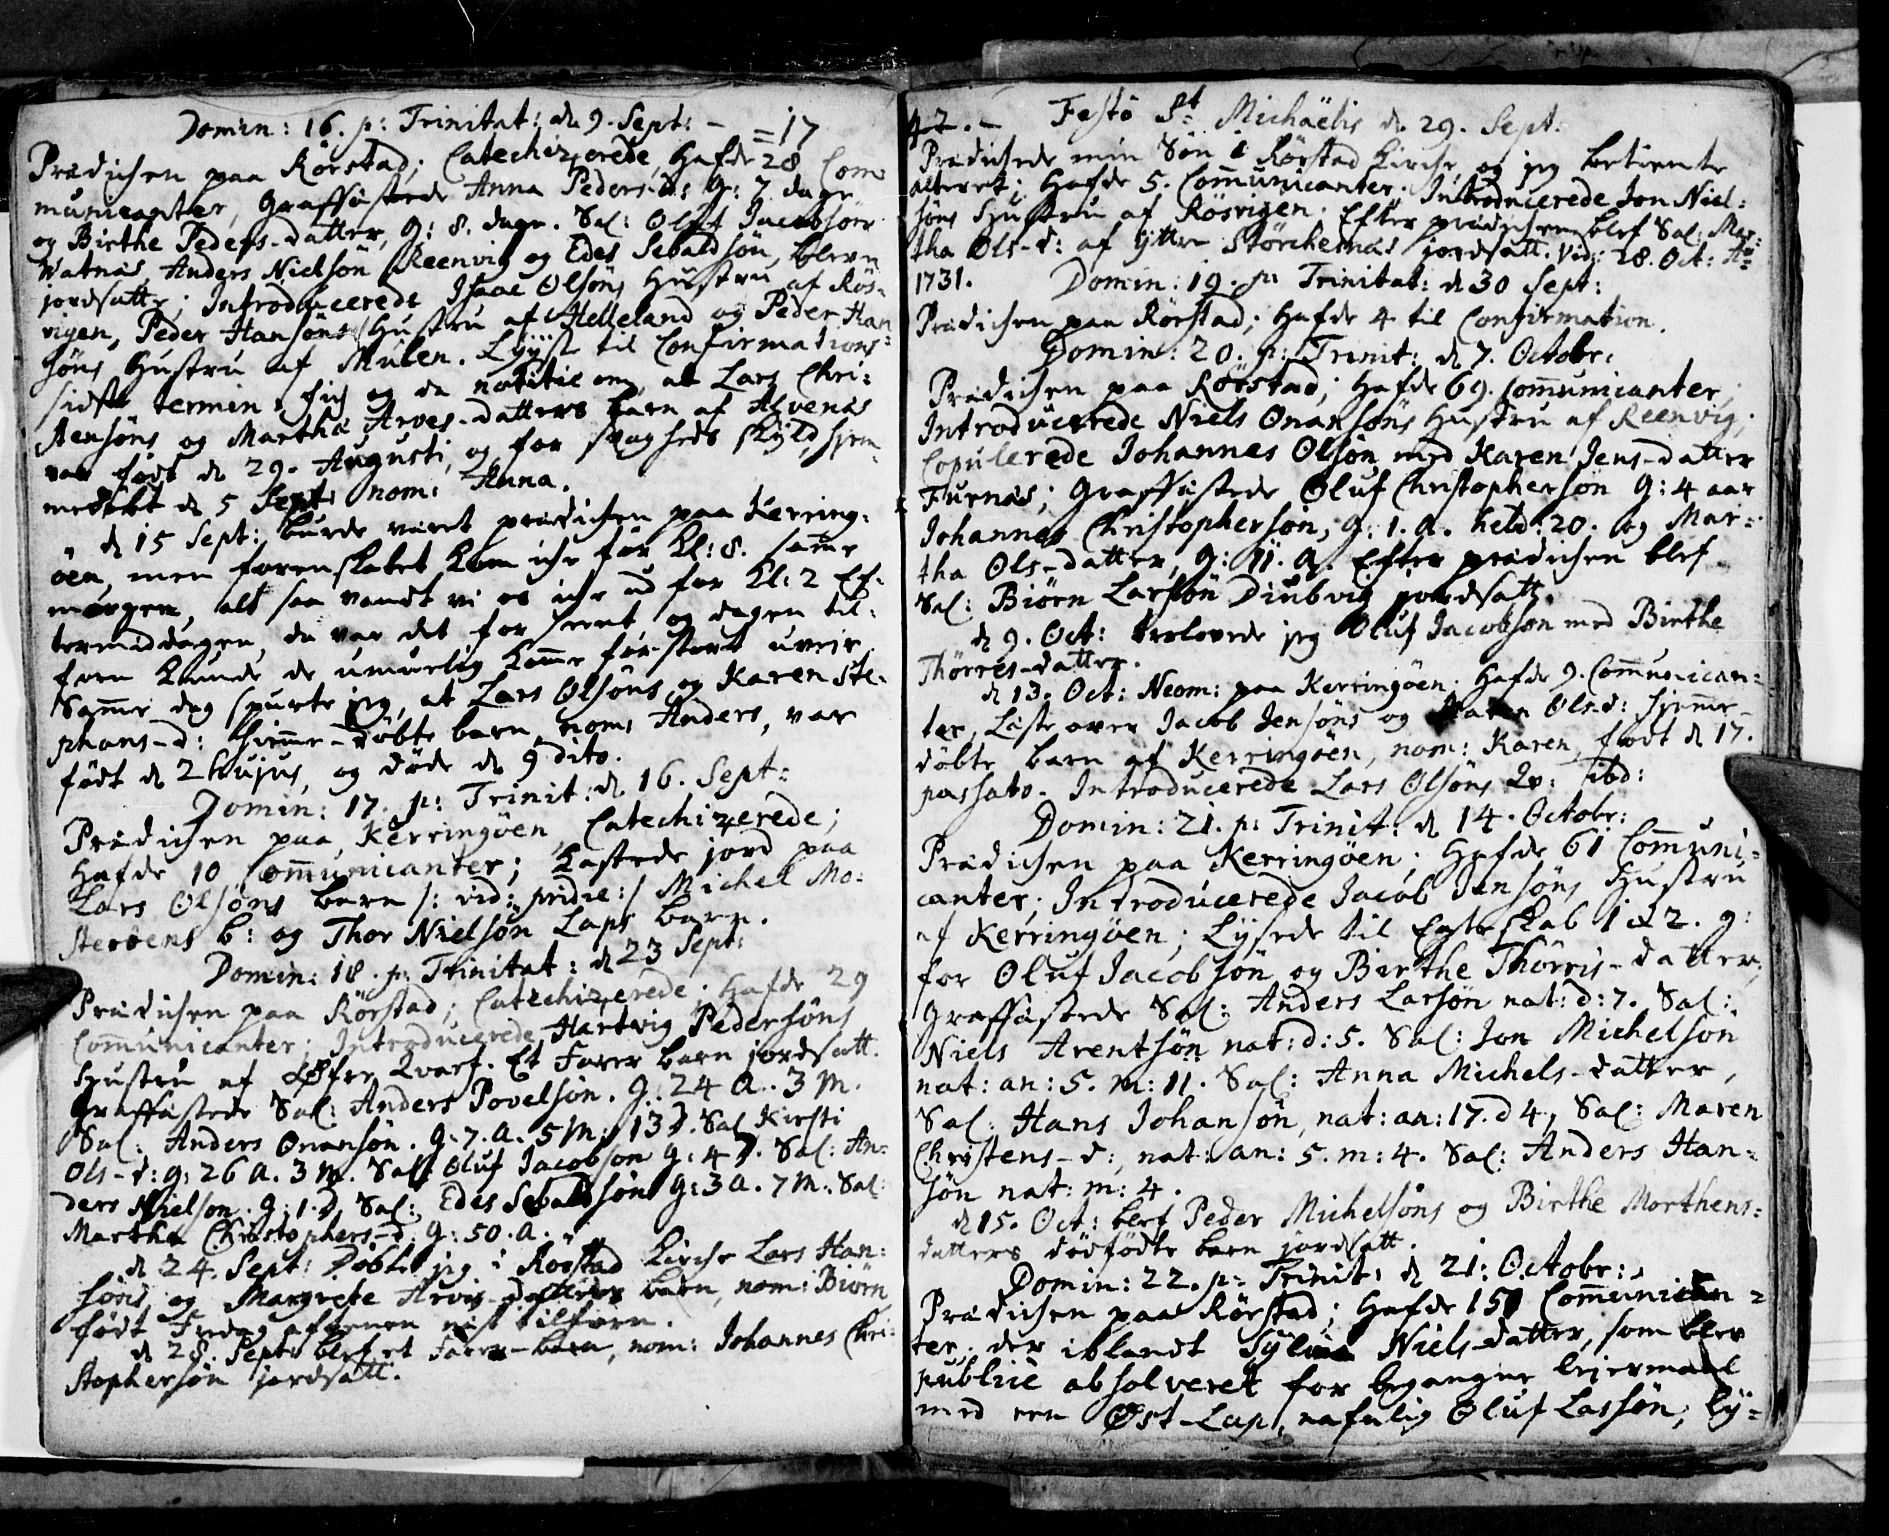 Domin: 16. p: Trinitat: d 9. Sept: – =17
Prædichen paa Rörstad; Catechizerede, Hafde 28 Com¯
municanter, Graffästede Anna Peders-d: G: 7 dage
og Birthe Peders-datter, G: 8. dage. Sal: Oluf Jacobsön
Watnäs, Anders Nielsön Reenvig og Edes Sebaldsön, bleve
jordsatte; Introducerede Isaac Olsöns Hustru af Rös-
vigen, Peder Hansöns Hustru af Helleland og Peder Han
söns Hustru af Mulen. Lyyste til Confirmations-
sidste termin; fich og da notitie om, at Lars Chri-
stensöns og Martha Arves-datters barn af Alvenäs
var födt d 29. Augusti, og for svagheds skyld, hjem-
medöbt d 5 Sept: nom: Anna.
d 15 Sept: burde været prædichen paa Kerring-
öen, men forenskabet kom iche för Kl: 8. samme
morgen, alt saa vandt vi os iche ud for Kl: 2 Ef-
termiddagen, da var det for seent, og dagen til-
forn kunde de umuelig komme for stort uveir.
Samme dag spurte jeg, at Lars Olsöns og Karen Ste-
phans-d: hiemme-döbte barn, nom: Anders, var
födt d 2 hujus, og döde d 9 dito.
Domin: 17. p: Trinit: d 16. Sept:
Prædichen paa Kerringöen, Catechizerede;
Hafde 10 Communicanter; Kastede jord paa
Lars Olsöns barn /: vid: pridie :/ Michel Mo-
stensens b: og Thor Nielsön Laps barn.
Domin: 18. p: Trinitat: d 23 Sept:
Prædichen paa Rörstad; Catechizerede; Hafde 29
Communicanter; Introducerede Hartvig Pedersöns
Hustru af Öfre Qvarf. Et Farer barn jordsatt.
Graffästede Sal: Anders Povelsön. G: 24 A. 3 M.
Sal: Anders Onansön. G. 7. A. 5 M: 13 D. Sal Kirsti
Ols-d: G: 26 A. 3 M. Sal: Oluf Jacobson G: 4 D. Sal: An-
ders Nielson. G: 1. D. Sal: Edes Sebaldsön G: 3 A. 7 M. Sal:
Martha Christophers-d. G: 50. A.
d 24. Sept: Döbte jeg i Rörstad Kirche Lars Han-
söns og Margrete Arvis-datters barn, nom: Biörn
födt Fredag aftenen næst tilforn.
d 28. Sept: blef et Farer-barn, nom: Johannes Chri-
stophersön jordsatt.
42. – Festô St Michaëlis d. 29. Sept:
Prædichede min Sön i Rörstad Kirche, og jeg betiente
alteret; Hafde 5. Communicanter; Introducerede Jon Niel-
söns Hustru af Rösvigen; Efter prædichen blef Sal: Mar-
tha Ols-d: af yttre Störchernäs jordsatt. vid: 28. Oct: Ao
1731. Domin: 19. p: Trinitat: d 30 Sept:
Prædichen paa Rörstad; Hafde 4 til Confirmation.
Domin: 20. p: Trinit: d 7. Octobr:
Prædichen paa Rörstad; Hafde 69. Communicanter;
Introducerede Niels Onansöns Hustru af Reenvig;
Copulerede Johannes Olsön med Karen Jens-datter
Furnäs; Graffästede Oluf Christophersön G: 4 aar
Johannes Christophersön, G: 1. A. hebd: 20. og Mar-
tha Ols-datter, G: 11. A. Efter prædichen blef
Sal: Biörn Larsön Diubvig jordsatt.
d 9. Oct: trolovede jeg Oluf Jacobsön med Birthe
Thörres-datter.
d 13. Oct: Neom: paa Kerringöen. Hafde 9. Communican-
ter, Læste over Jacob Jensöns og Maren Ols-d: hjemme
döbte barn af Kerringöen, nom: Karen, födt d 17.
passato. Introducerede Lars Olsöns Qv: ibd:
Domin: 21. p: Trinit: d 14. Octobr:
Prædichen paa Kerringöen; Hafde 61 Communi-
canter; Introducerede Jacob Jensöns Hustru
af Kerringöen; Lysede til Egteskab 1 & 2. g:
for Oluf Jacobsön og Birthe Thörris-datter;
Graffästede Sal: Anders Larsön nat: d: 7. Sal:
Niels Arentsön nat: d: 5. Sal: Jon Michelsön
nat: an: 5. m: 11. Sal: Anna Michels-datter,
Sal: Hans Johansön, nat: an: 17. d 4, Sal: Maren
Christens-d:, nat: an: 5. m: 4. Sal: Anders Han-
sön nat: m: 4.
d 15. Oct: blef Peder Michelsöns og Birthe Morthens-
datters dödfödte barn jordsatt.
Domin: 22. p: Trinit: d 21: Octobr:
Prædichen paa Rörstad; Hafde 151 Communican-
ter, der iblandt Sylvia Niels-datter, som blev
publicè absolveret for begangne leiermaal
med een Öst-Lap, nafnlig Oluf Lassön; Ly-